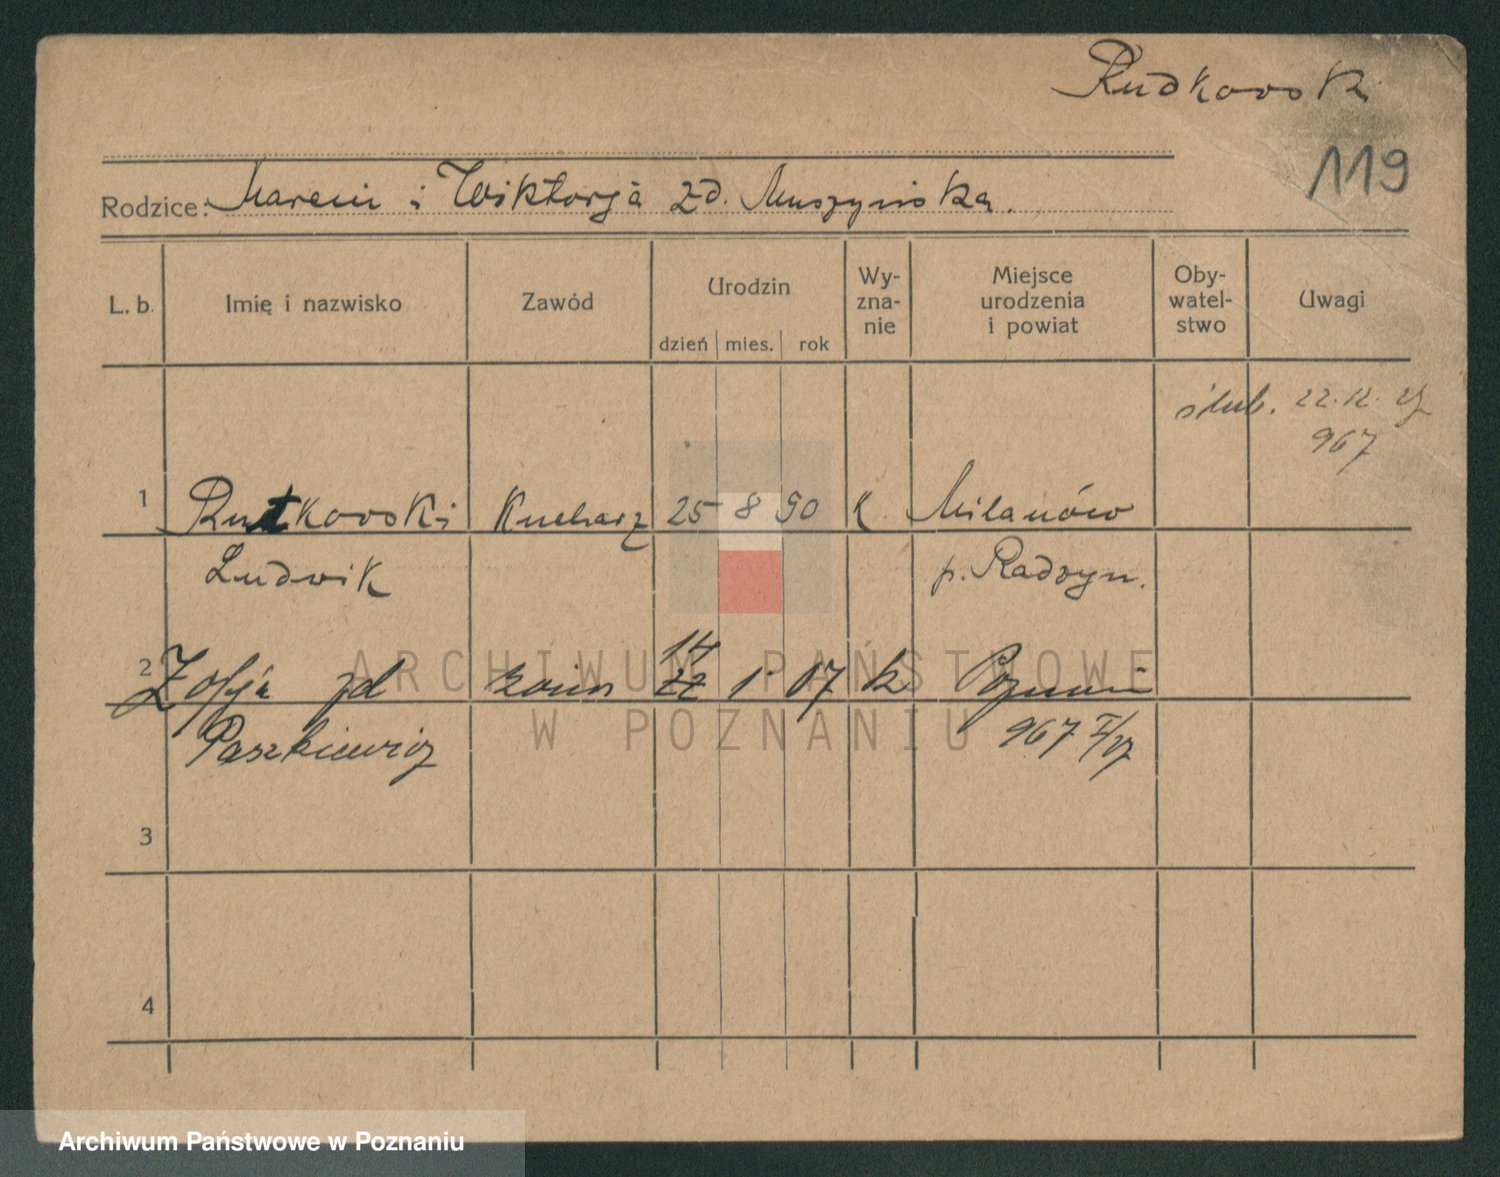 Rudkowski
119
Rodzice: Marcin i Wiktorja zd. Muszyńska.
L. b. Imię i nazwisko Zawód Urodzin dzień mies. rok Wy-zna-nie Miejsce urodzenia i powiat Oby-watel-stwo Uwagi
ślub. 22.12.27
967
1 Rutkowski Kucharz 25 8 90 k Milanów
Ludwik p. Radzyn.
14
2 Zofja zd 22 1 07 k Poznań
Paszkiewicz 967 I/27
3
4
ARCHIWUM PAŃSTWOWE
W POZNANIU
Archiwum Państwowe w Poznaniu